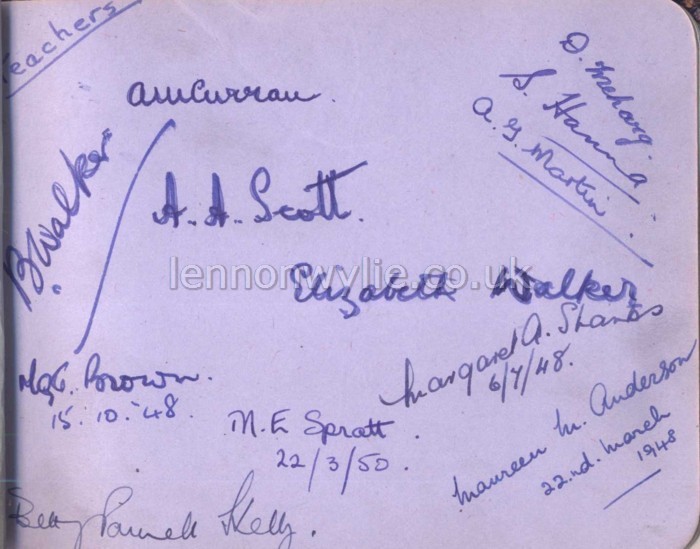 Teachers
D. Meharg.
S. Hanna
A. G. Martin
AMCurran.
B. Walker
A. A. Scott.
lennonwylie.co.uk
Elizabeth Walker
Margaret A. Shanks
6/7/48.
Mgt. Brown.
15. 10. '48.
M. E. Spratt.
22/3/50.
Maureen M. Anderson
22.nd. March
1948
Betty Kelly.